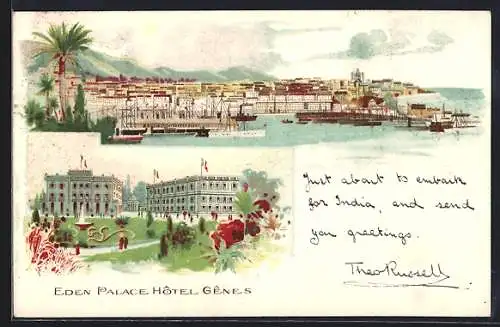 Just about to embark
for India, and send
you greetings.
Theo Russell
EDEN PALACE HÔTEL GÊNES